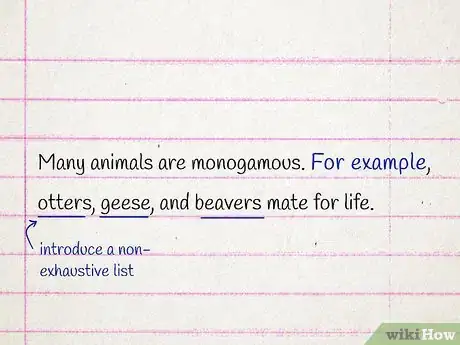 Many animals are monogamous. For example,
otters, geese, and beavers mate for life.
introduce a non-
exhaustive list
wikiHow